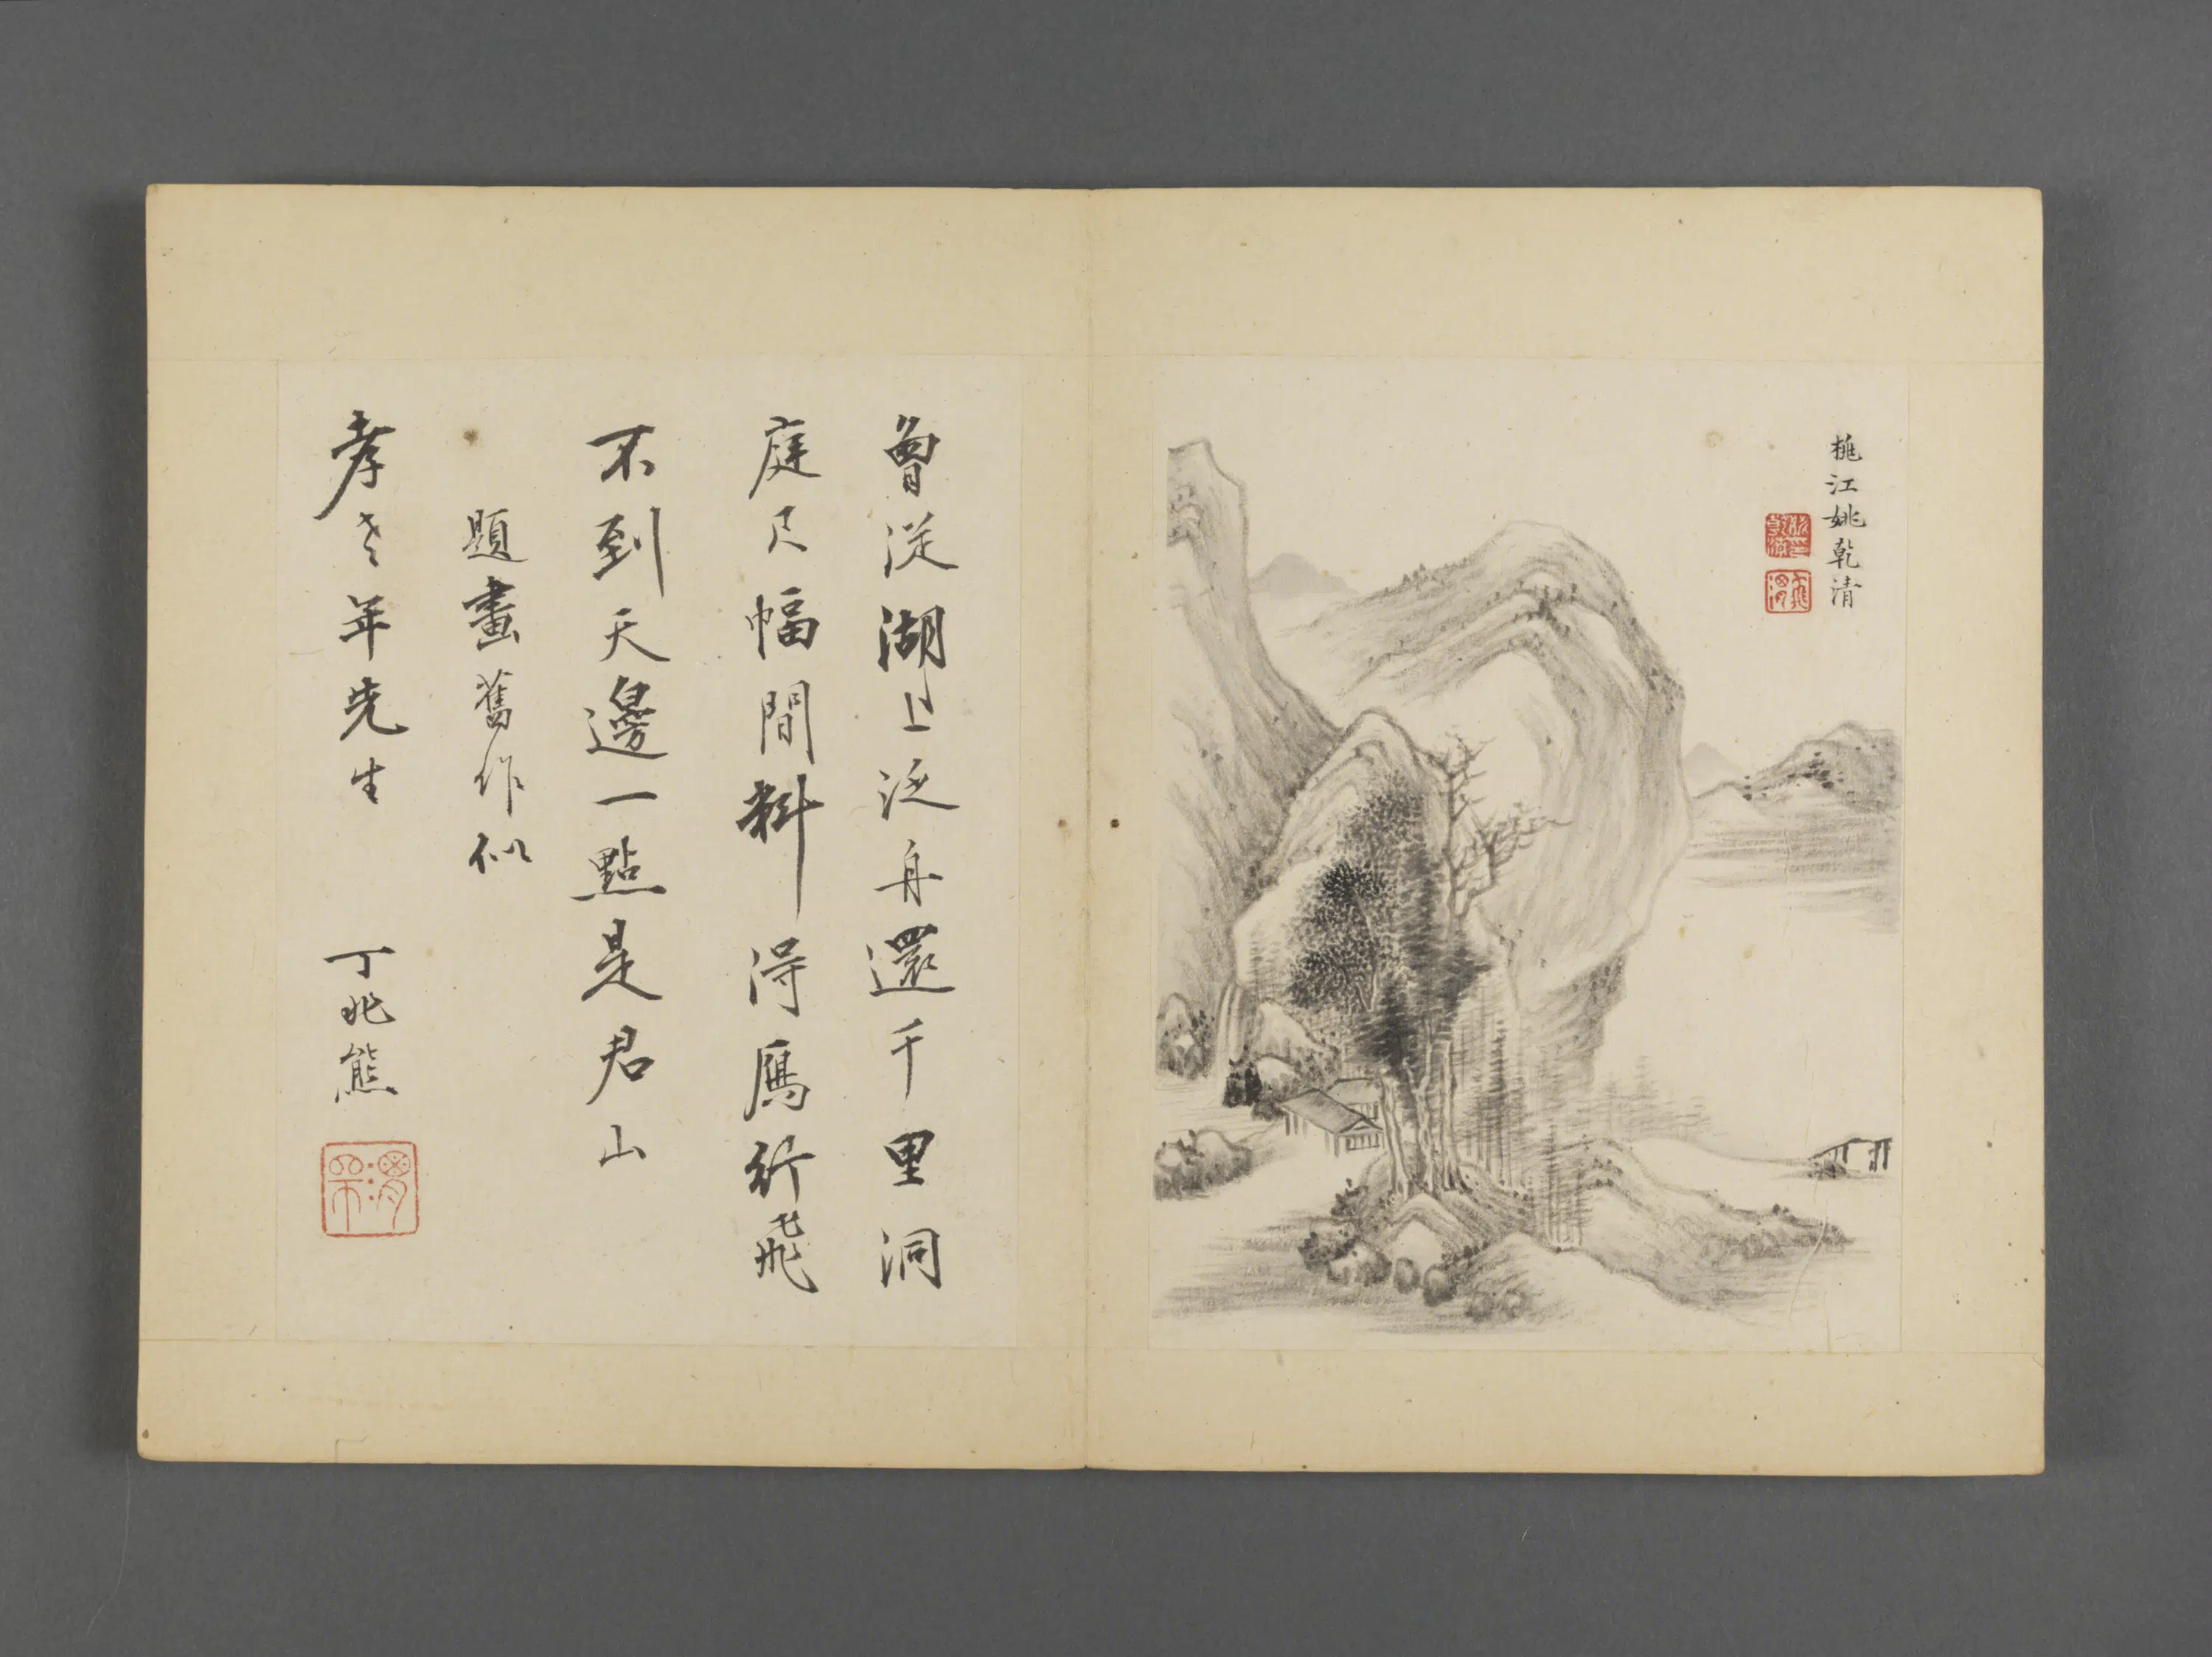 桃江姚乾清
曾從湖上泛舟還千里洞
庭尺幅間料得鴈行飛
不到天邊一點是君山
題畫舊作似
孝老年先生
丁兆熊
渭